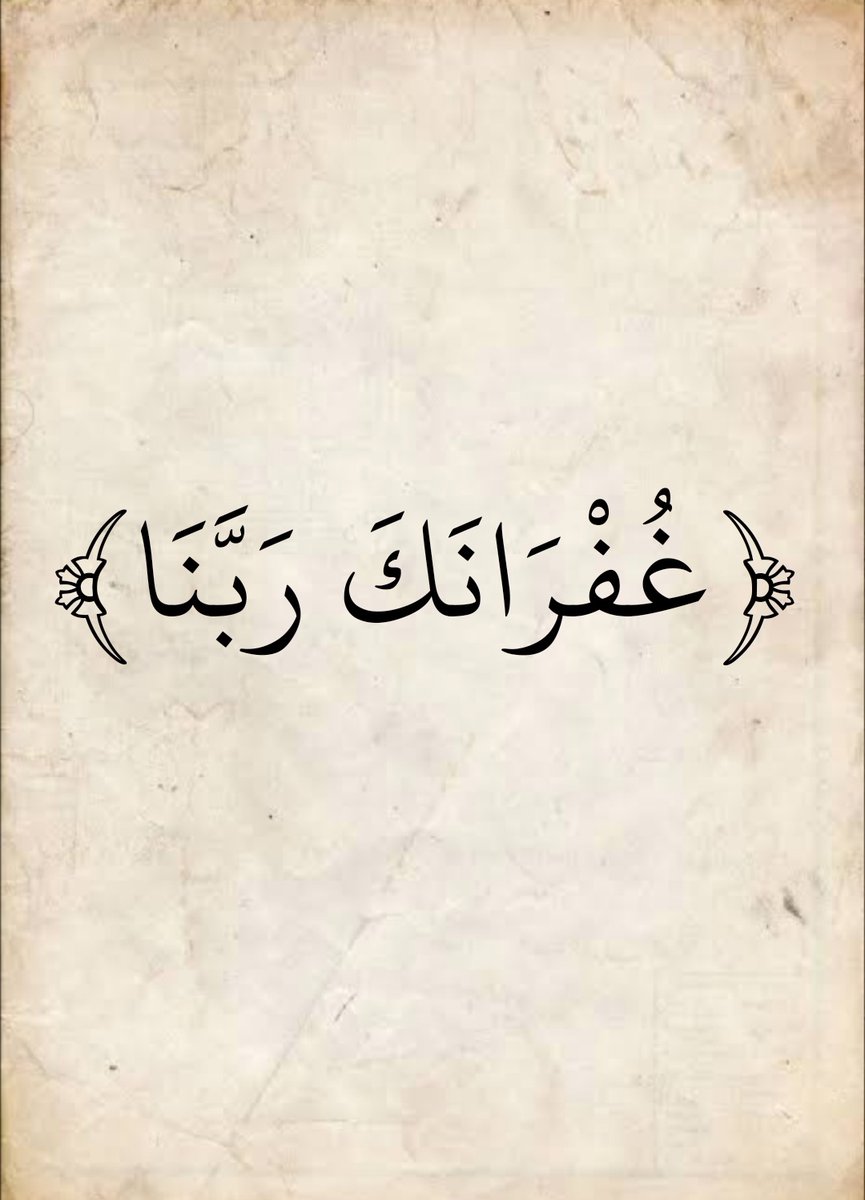 ﴿غُفْرَانَكَ رَبَّنَا﴾